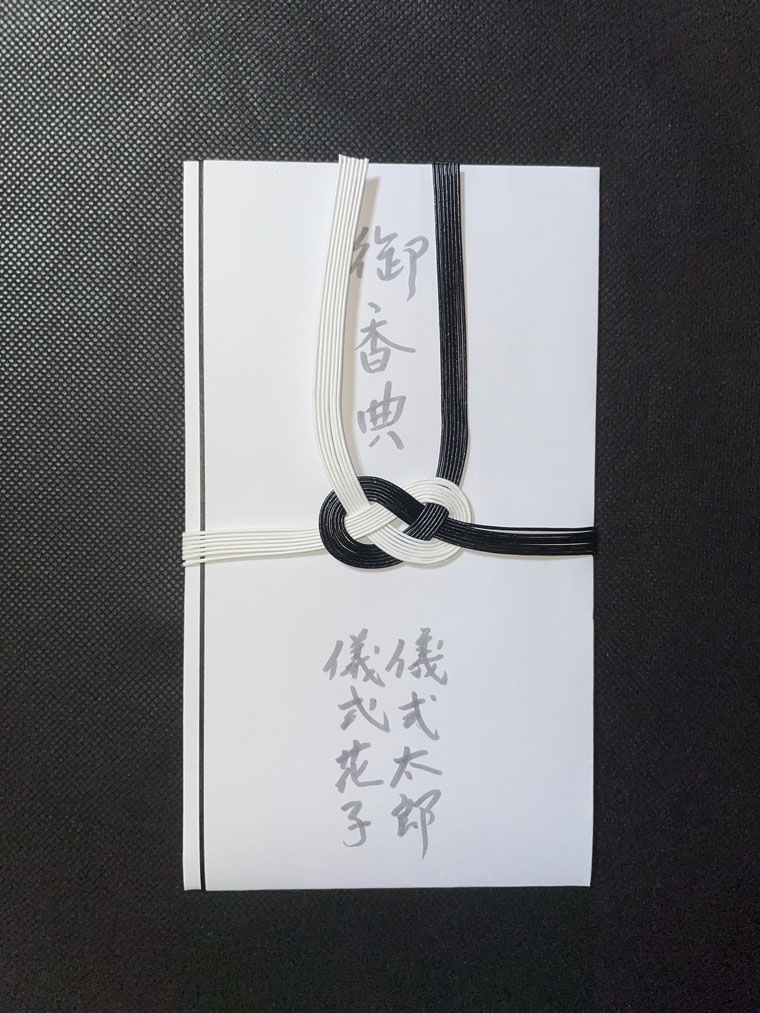 御香典
儀式太郎
儀式花子